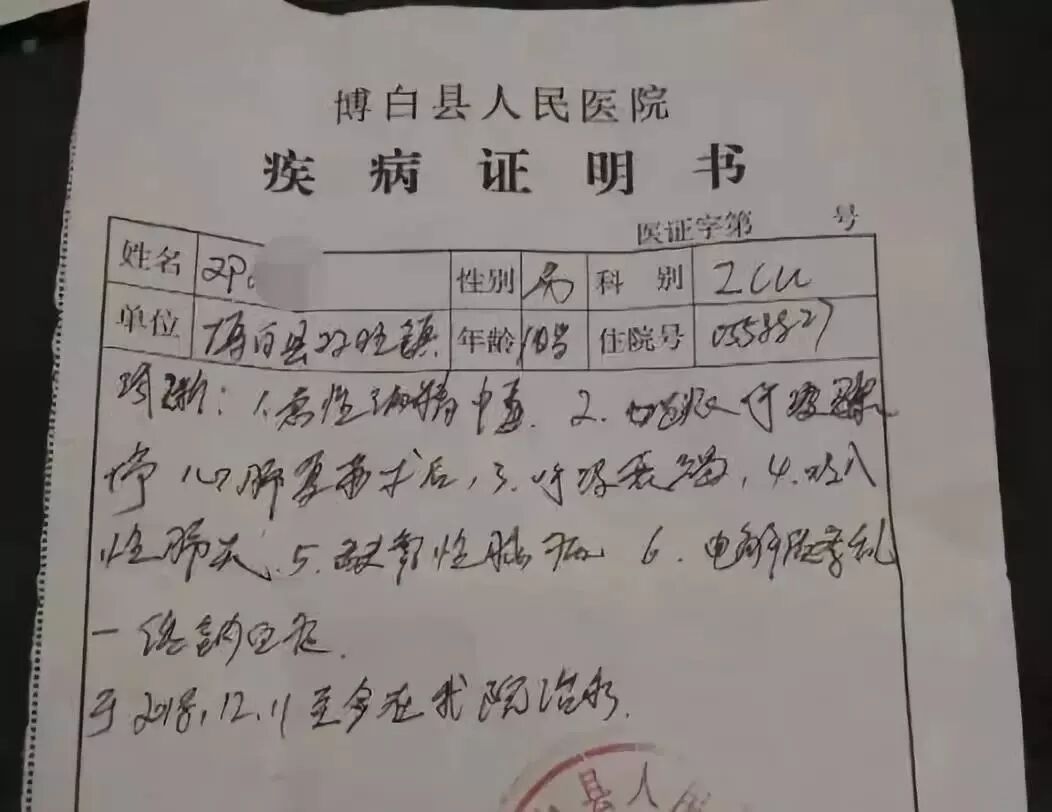 博白县人民医院
疾病证明书
医证字第 号
姓名 性别 男 科别 ICU
单位 博白县双旺镇 年龄 18岁 住院号 0558827
诊断：1.急性酒精中毒. 2. 呼吸 呼吸骤
停 心肺复苏术后, 3.呼吸衰竭, 4.吸入
性肺炎. 5. 缺氧性脑病 6. 电解质紊乱
一低钠血症.
于2018.12.11至今在我院治疗.
县人